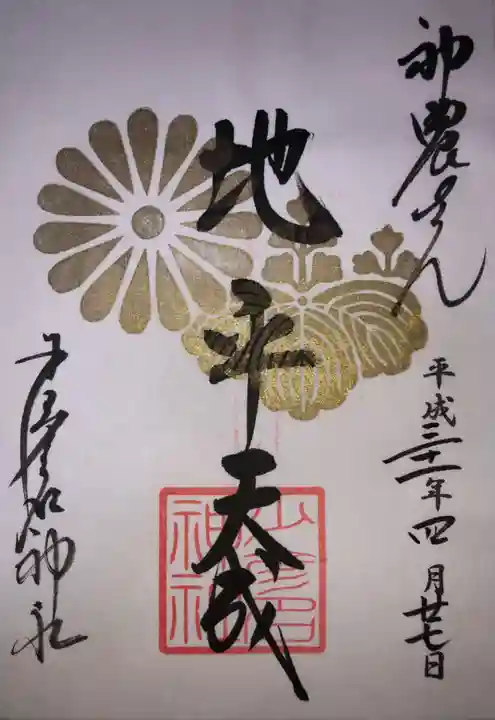 神農さん
平成三十一年四月廿七日
地平天成
少彦名神社
少彦名神社